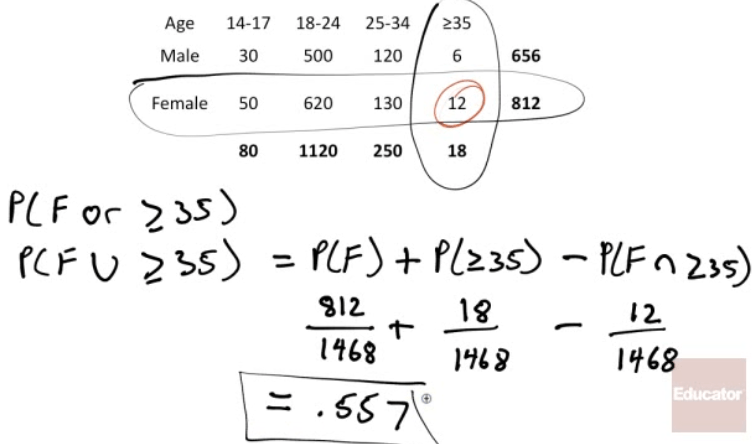 Age 14-17 18-24 25-34 ≥35
Male 30 500 120 6 656
Female 50 620 130 12 812
80 1120 250 18
P(F or ≥35)
P(F ∪ ≥35) = P(F) + P(≥35) - P(F ∩ ≥35)
812/1468 + 18/1468 - 12/1468
= .557
Educator